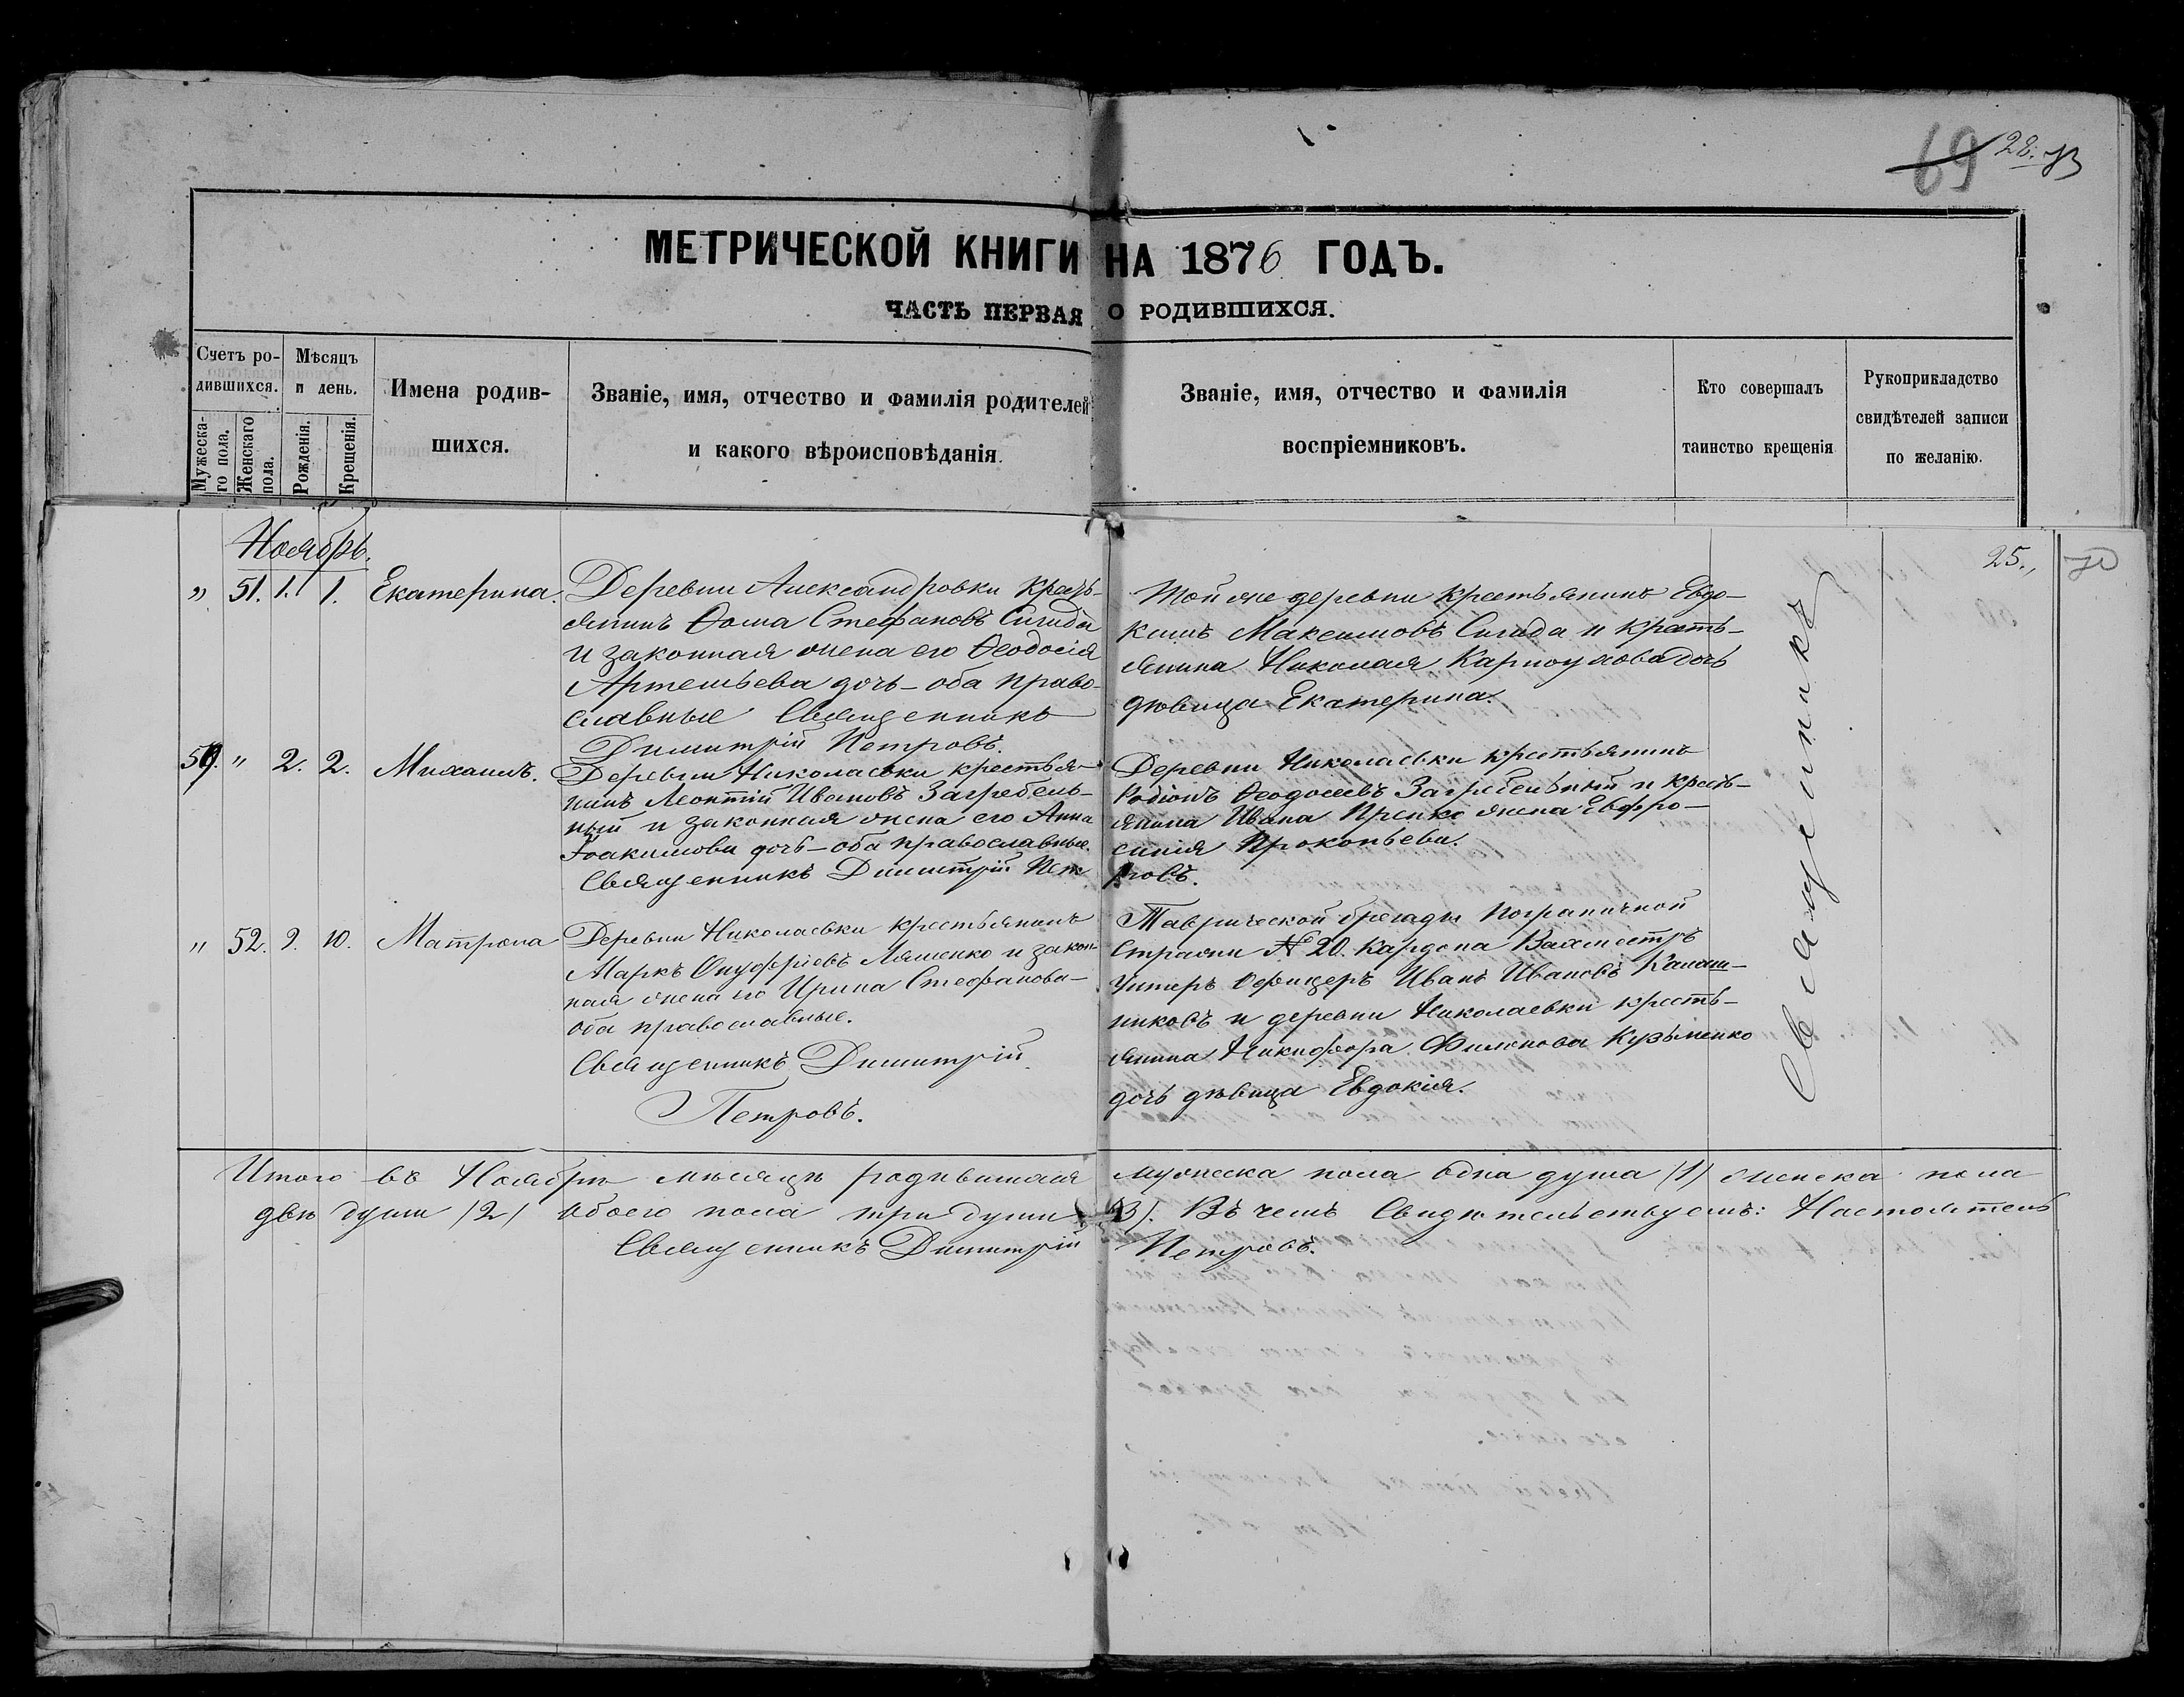 69 28.
МЕТРИЧЕСКОЙ КНИГИ НА 1876 ГОДЪ.
ЧАСТЬ ПЕРВАЯ О РОДИВШИХСЯ.
Счетъ родившихся.
Мужескаго пола.
Женскаго пола.
Мѣсяцъ и день.
Рожденія.
Крещенія.
Имена родившихся.
Званіе, имя, отчество и фамилія родителей
и какого вѣроисповѣданія.
Званіе, имя, отчество и фамилія
воспріемниковъ.
Кто совершалъ
таинство крещенія
Рукоприкладство
свидѣтелей записи
по желанію.
25.
Ноябрь.
" 51. 1. 1. Екатерина.
Деревни Александровки кресть-
янинъ Ѳома Стефановъ Сигида
и законная жена его Ѳеодосія
Артемьева дочь - оба право-
славные Священникъ
Димитрій Петровъ.
Той же деревни крестьянинъ Евдо-
кимъ Максимовъ Сигида и кресть-
янина Николая Карпоухова дочь
дѣвица Екатерина.
59. " 2. 2. Михаилъ.
Деревни Николаевки крестья-
нинъ Леонтій Ивановъ Загребель-
ный и законная жена его Анна
Іоакимова дочь - оба православные.
Священникъ Димитрій Пет
Деревни Николаевки крестьянинъ
Родіонъ Ѳеодосіевъ Загребельный и кресть-
янина Ивана жена Евфро-
синія Прокопьева.
ровъ.
" 52. 9. 10. Матрона
Деревни Николаевки крестьянинъ
Маркъ Онуфріевъ Ляшенко и закон-
ная жена его Ирина Стефанова -
оба православные.
Священникъ Димитрій
Петровъ.
Таврической бригады Пограничной
Стражи № 20. Кардона Вахмистръ
Унтеръ Офицеръ Иванъ Ивановъ Калаш-
никовъ и деревни Николаевки кресть-
янина Никифора Филипова Кузьменко
дочь дѣвица Евдокія.
Священникъ
Итого въ Ноябрѣ мѣсяцѣ родившихся мужеска пола одна душа (1) женска пола
двѣ души (2) обоего пола три души (3). Въ чемъ Свидѣтельствуемъ: Настоятель
Священникъ Димитрій Петровъ.